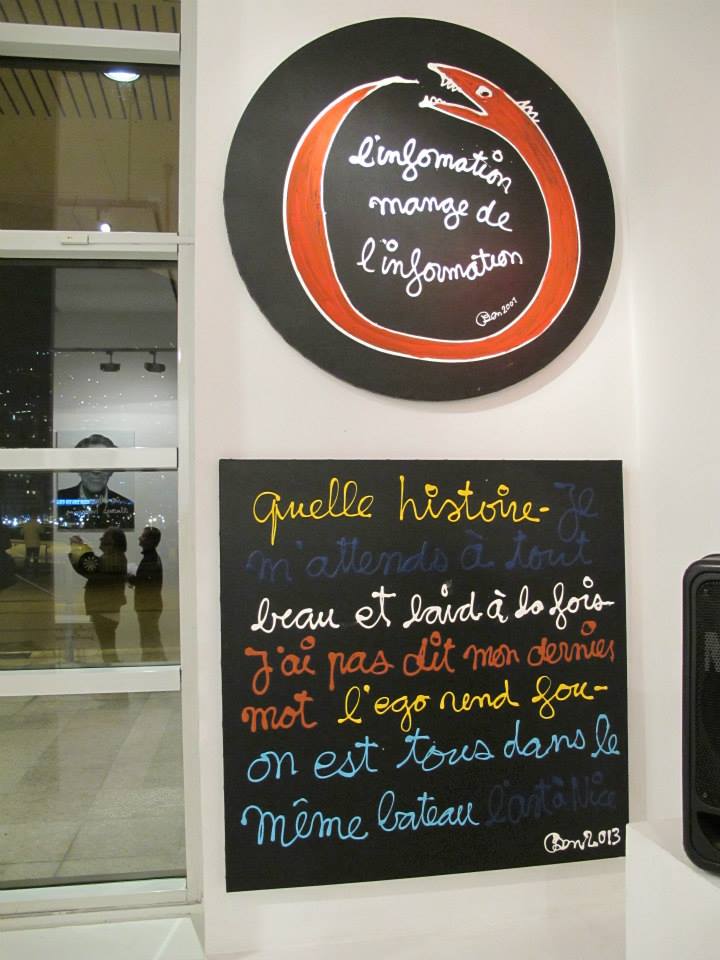 l'infomation
mange de
l'information
Ben 2001
quelle histoire - Je
m'attends à tout
beau et laid à la fois
J'ai pas dit mon dernier
mot l'ego rend fou -
on est tous dans le
même bateau l'art à Nice
Ben 2013